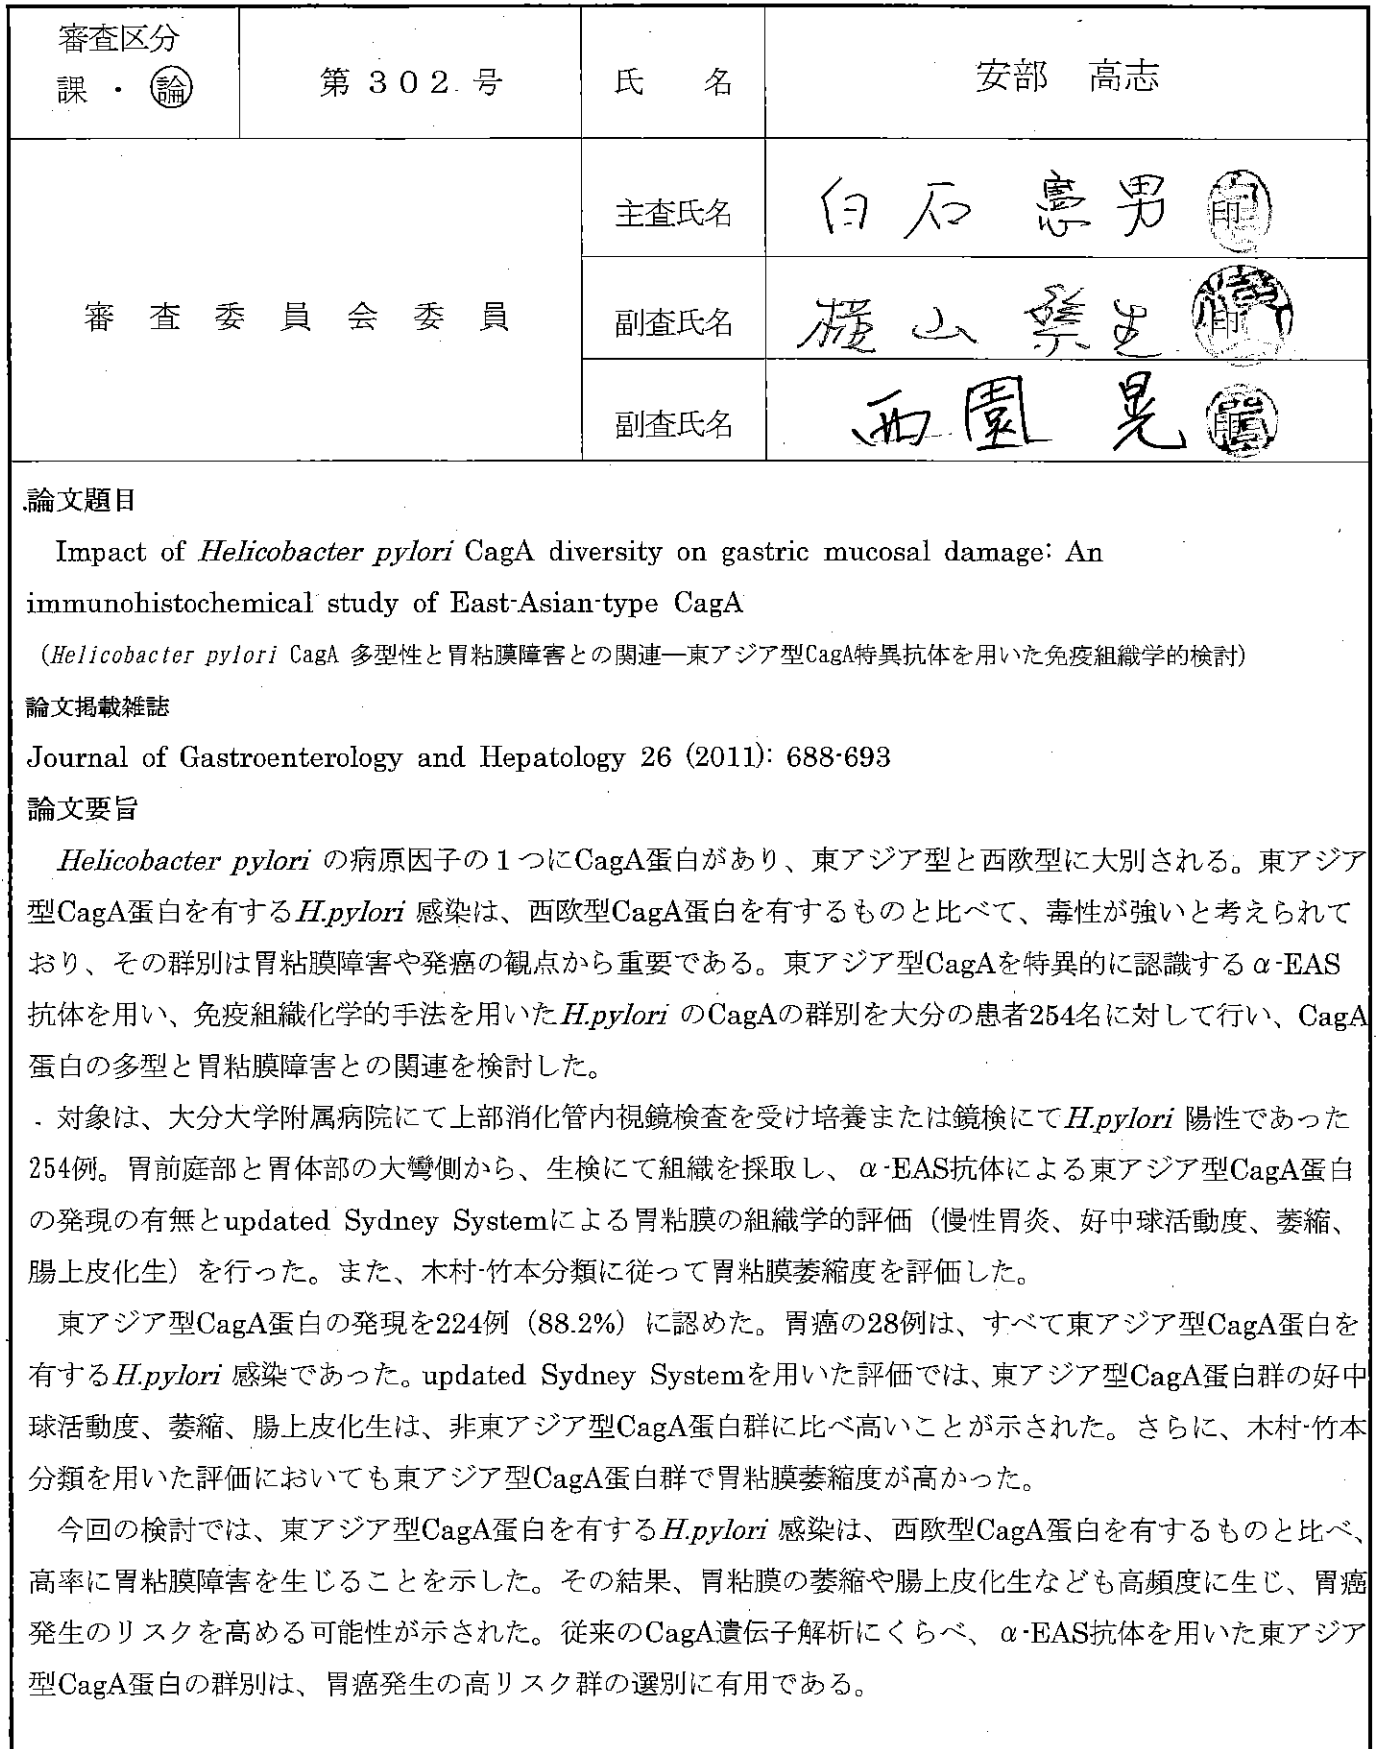 審査区分
課 ・ 論
第 302 号
氏 名
安部 高志
審査委員会委員
主査氏名
白石 憲男 印
副査氏名
横山 繁生 印
副査氏名
西園 晃 印
論文題目
Impact of Helicobacter pylori CagA diversity on gastric mucosal damage: An
immunohistochemical study of East-Asian-type CagA
(Helicobacter pylori CagA 多型性と胃粘膜障害との関連―東アジア型CagA特異抗体を用いた免疫組織学的検討)
論文掲載雑誌
Journal of Gastroenterology and Hepatology 26 (2011): 688-693
論文要旨
Helicobacter pylori の病原因子の1つにCagA蛋白があり、東アジア型と西欧型に大別される。東アジア
型CagA蛋白を有するH.pylori 感染は、西欧型CagA蛋白を有するものと比べて、毒性が強いと考えられて
おり、その群別は胃粘膜障害や発癌の観点から重要である。東アジア型CagAを特異的に認識するα-EAS
抗体を用い、免疫組織化学的手法を用いたH.pylori のCagAの群別を大分の患者254名に対して行い、CagA
蛋白の多型と胃粘膜障害との関連を検討した。
対象は、大分大学附属病院にて上部消化管内視鏡検査を受け培養または鏡検にてH.pylori 陽性であった
254例。胃前庭部と胃体部の大彎側から、生検にて組織を採取し、α-EAS抗体による東アジア型CagA蛋白
の発現の有無とupdated Sydney Systemによる胃粘膜の組織学的評価（慢性胃炎、好中球活動度、萎縮、
腸上皮化生）を行った。また、木村-竹本分類に従って胃粘膜萎縮度を評価した。
東アジア型CagA蛋白の発現を224例（88.2%）に認めた。胃癌の28例は、すべて東アジア型CagA蛋白を
有するH.pylori 感染であった。updated Sydney Systemを用いた評価では、東アジア型CagA蛋白群の好中
球活動度、萎縮、腸上皮化生は、非東アジア型CagA蛋白群に比べ高いことが示された。さらに、木村-竹本
分類を用いた評価においても東アジア型CagA蛋白群で胃粘膜萎縮度が高かった。
今回の検討では、東アジア型CagA蛋白を有するH.pylori 感染は、西欧型CagA蛋白を有するものと比べ、
高率に胃粘膜障害を生じることを示した。その結果、胃粘膜の萎縮や腸上皮化生なども高頻度に生じ、胃癌
発生のリスクを高める可能性が示された。従来のCagA遺伝子解析にくらべ、α-EAS抗体を用いた東アジア
型CagA蛋白の群別は、胃癌発生の高リスク群の選別に有用である。